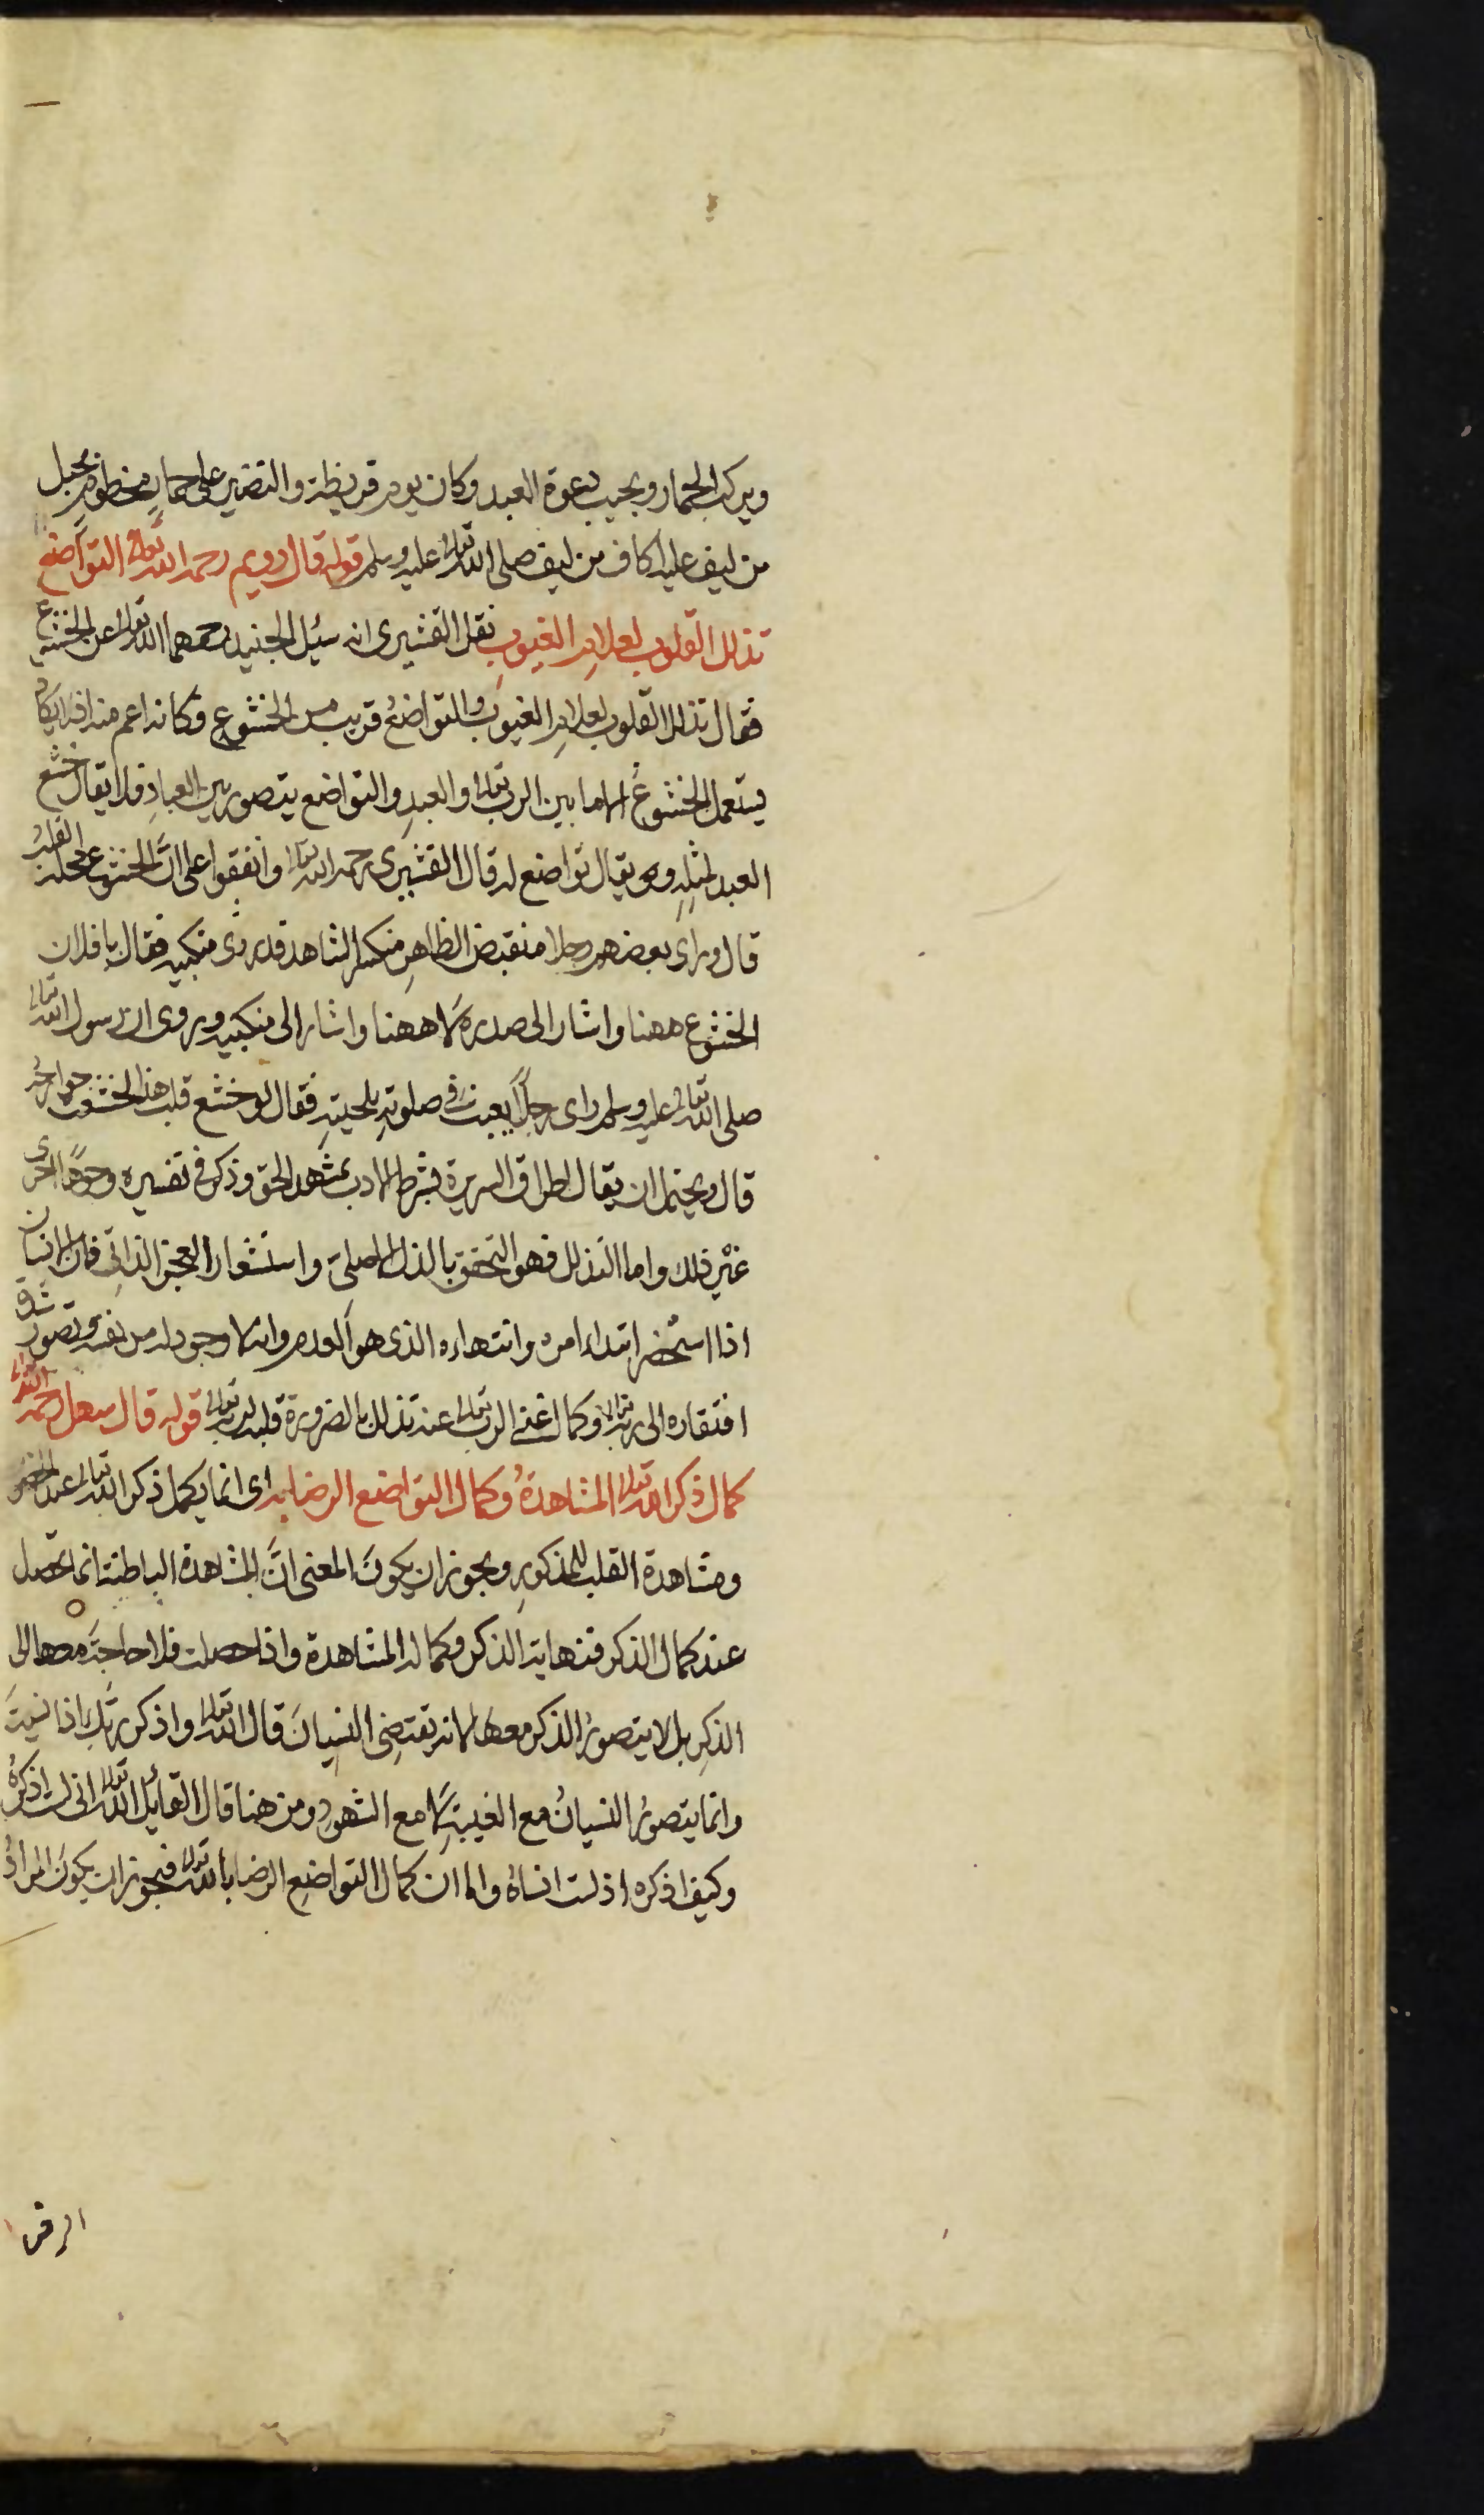 ويركب الحمار ويجيب دعوة العبد وكان يوم قريظة والنضير على حمار مخطوم بحبل
من ليف عليه اكاف من ليف صلى الله تعالى عليه وسلم قوله قال رويم رحمه الله تعالى التواضع
تذلل القلوب لعلام الغيوب نقل القشيري انه سئل الجنيد رحمهما الله تعالى عن الخشوع
فقال تذلل القلوب لعلام الغيوب والتواضع قريب من الخشوع وكانه اعم منه اذ لا يكاد
يستعمل الخشوع الا ما بين الرب تعالى والعبد والتواضع يتصور بين العباد فلا يقال خشع
العبد لمثله وهو يقال تواضع له قال القشيري رحمه الله تعالى واتفقوا على انَّ الخشوع محله القلب
قال وراى بعضهم رجلا منقبض الظاهر منكسر الشاهد قد زوى منكبيه فقال يا فلان
الخشوع ههنا واشار الى صدره لا ههنا واشار الى منكبيه ويروى ان رسول الله تعالى
صلى الله تعالى عليه وسلم راى رجلاً يعبث في صلوته بلحيته فقال لو خشع قلب هذا لخشعت جوارحه
قال ويحتمل ان يقال اطراق السريرة بشرط الادب بمشهد الحق وذكر في تفسيره وجوهًا اخرى
غير ذلك واما التذلل فهو التحقق بالذل الاصلى واستشعار العجز الذاتي فان الانسان
اذا استحضر ابتداء امره وانتهاءه الذى هو العدم وانه لا وجود له من نفسه وتصور شدة
افتقاره الى ربه تعالى وكمال غنى الرب تعالى عنه تذلل بالضرورة قلبه لربه تعالى قوله قال سهل رحمه الله تعالى
كمال ذكر الله تعالى المشاهدةُ وكمال التواضع الرضا به اى انما يكمل ذكر الله تعالى عند الحضور
ومشاهدة القلب للمذكور ويجوز ان يكونَ المعنى انَّ المشاهدة الباطنة انما تحصل
عند كمال الذكر فنهاية الذكر وكماله المشاهدة واذا حصلت فلا حاجة معها الى
الذكرِ بل لا يتصورُ الذكر معها لانه يقتضى النسيانَ قال الله تعالى واذكر ربك اذا نسيتَ
وانما يتصورُ النسيانُ مع الغيبة لا مع الشهود ومن هنا قال القائل الله تعالى انى لست اذكرهُ
وكيف اذكره اذ لست انساهُ واما ان كمال التواضع الرضا بالله تعالى فيجوز ان يكونَ المرادُ